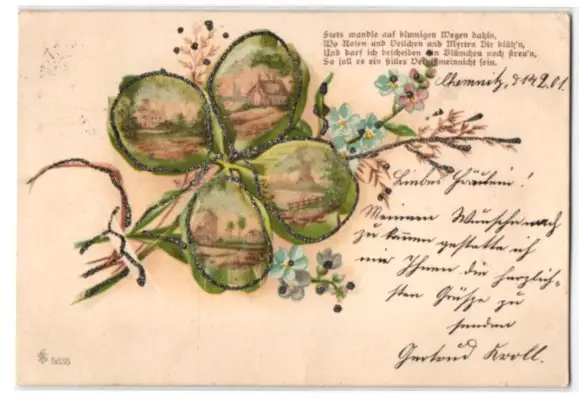 Stets wandle auf blumigen Wegen dahin,
Wo Rosen und Veilchen und Myrten Dir blüh'n,
Und darf ich bescheiden ein Blümchen noch streu'n,
So soll es ein stilles Vergißmeinnicht sein.
Chemnitz, d 14.2.01.
Liebes Fräulein!
Meinem Wunsche nach
zu kommen gestatte ich
mir Ihnen die herzlich-
sten Grüße zu
senden
Gertrud Kroll.
5635